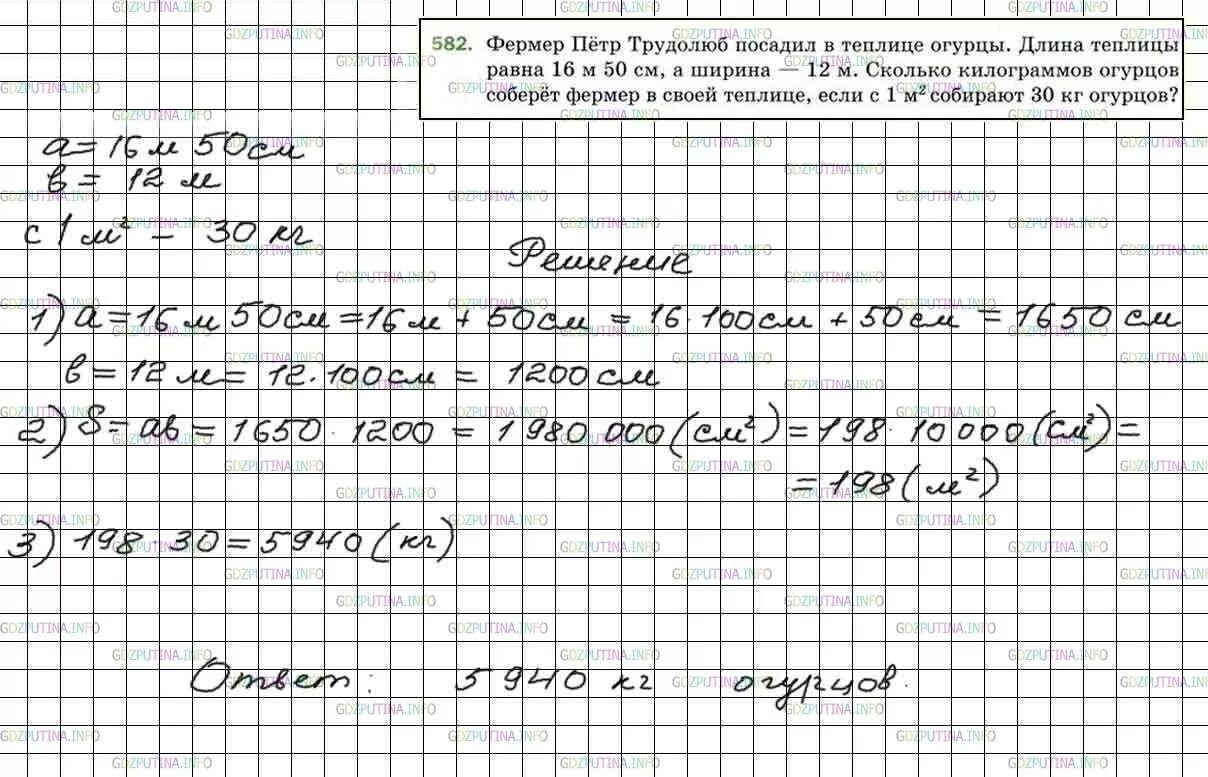 582. Фермер Пётр Трудолюб посадил в теплице огурцы. Длина теплицы
равна 16 м 50 см, а ширина — 12 м. Сколько килограммов огурцов
соберёт фермер в своей теплице, если с 1 м² собирают 30 кг огурцов?
a = 16 м 50 см
в = 12 м
с 1 м² – 30 кг
Решение
1) a = 16 м 50 см = 16 м + 50 см = 16 · 100 см + 50 см = 1650 см
в = 12 м = 12 · 100 см = 1200 см
2) S = ав = 1650 · 1200 = 1 980 000 (см²) = 198 · 10 000 (см²) =
= 198 (м²)
3) 198 · 30 = 5940 (кг)
Ответ: 5 940 кг огурцов.
GDZPUTINA.INFO